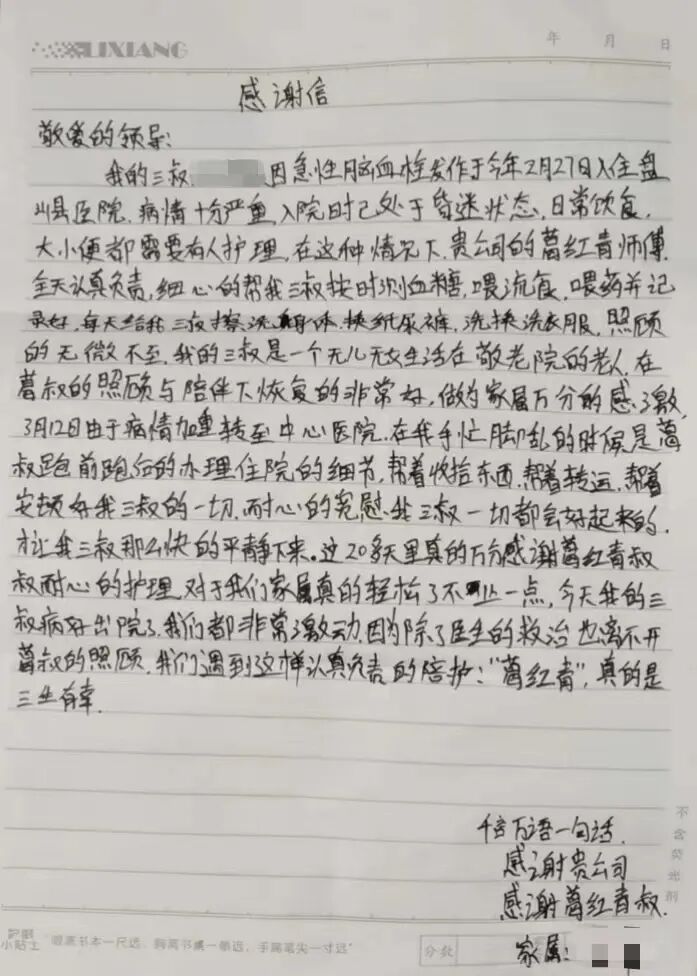 LIXIANG
年 月 日
感谢信
敬爱的领导:
我的三叔 因急性脑血栓发作于今年2月27日入住盘
山县医院.病情十分严重,入院时已处于昏迷状态,日常饮食,
大小便都需要有人护理,在这种情况下.贵公司的葛红青师傅.
全天认真负责,细心的帮我三叔按时测血糖,喂流食.喂药并记
录好,每天给我三叔擦洗身体,换纸尿裤,洗换洗衣服.照顾
的无微不至.我的三叔是一个无儿无女生活在敬老院的老人.在
葛叔的照顾与陪伴下恢复的非常好,做为家属万分的感激,
3月12日由于病情加重转至中心医院.在我手忙脚乱的时候是葛
叔跑前跑后的办理住院的细节,帮着收拾东西.帮着转运.帮着
安顿好我三叔的一切.耐心的宽慰我三叔一切都会好起来的.
才让我三叔那么快的平静下来.这20多天里真的万分感谢葛红青叔
叔耐心的护理.对于我们家属真的轻松了不止一点,今天我的三
叔病好出院了.我们都非常激动.因为除了医生的救治也离不开
葛叔的照顾.我们遇到这样认真负责的陪护:"葛红青",真的是
三生有幸.
千言万语一句话.
感谢贵公司
感谢葛红青叔.
家属:
不含荧光剂
护眼
小贴士 "眼离书本一尺远,胸离书桌一拳远,手离笔尖一寸远"
分数